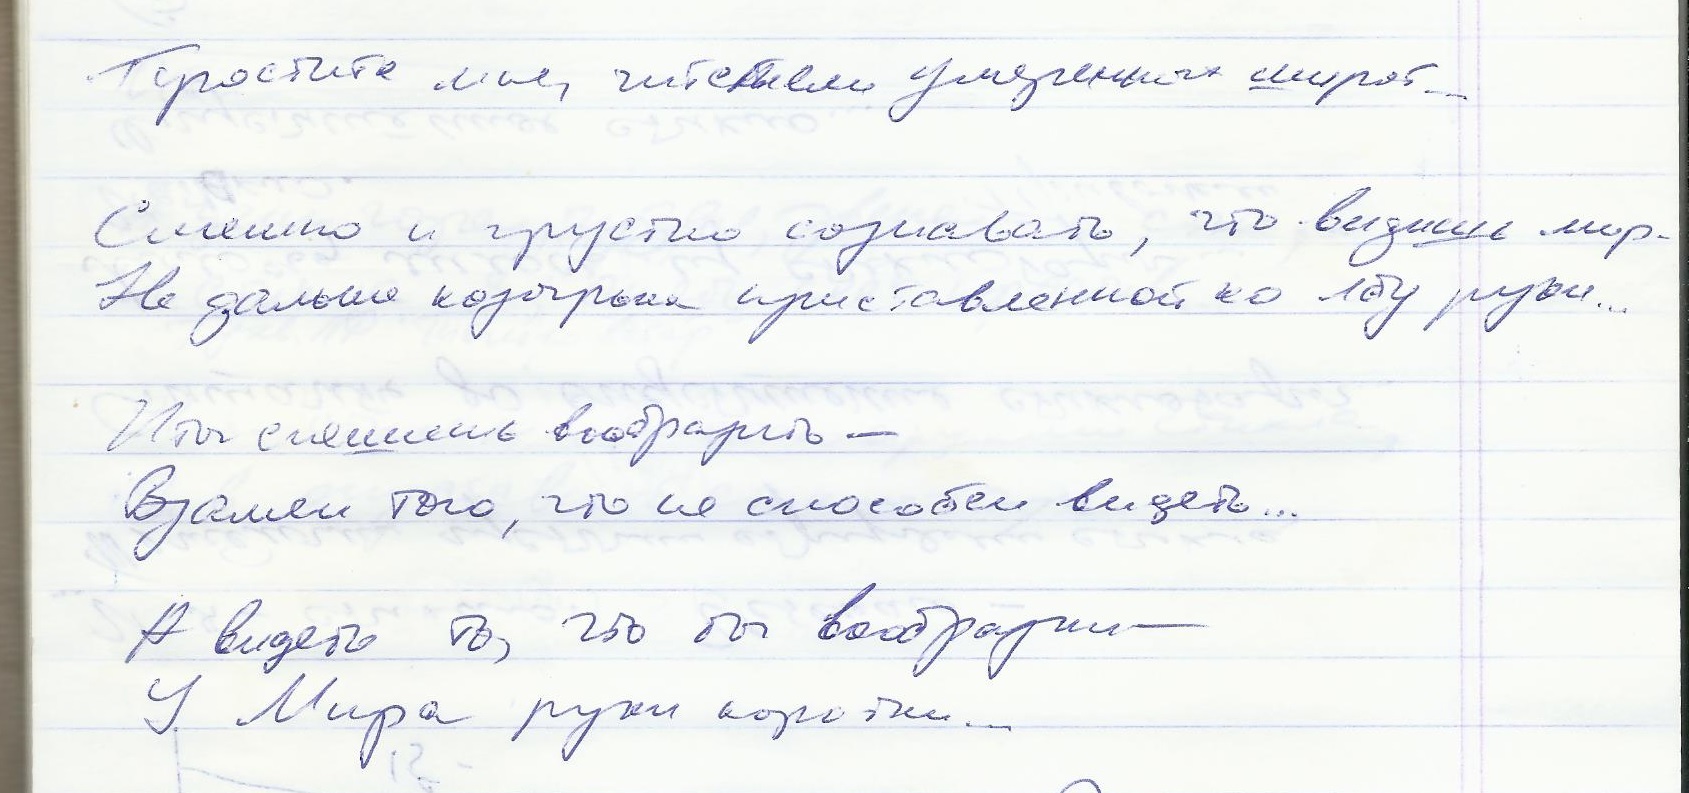 Простите мне, читатели умеренных широт...
Смешно и грустно сознавать, что видишь мир -
Не дальше козырька приставленной ко лбу руки...
И ты спешишь вообразить —
Взамен того, что не способен видеть...
А видеть то, что ты вообразил —
У Мира руки коротки...